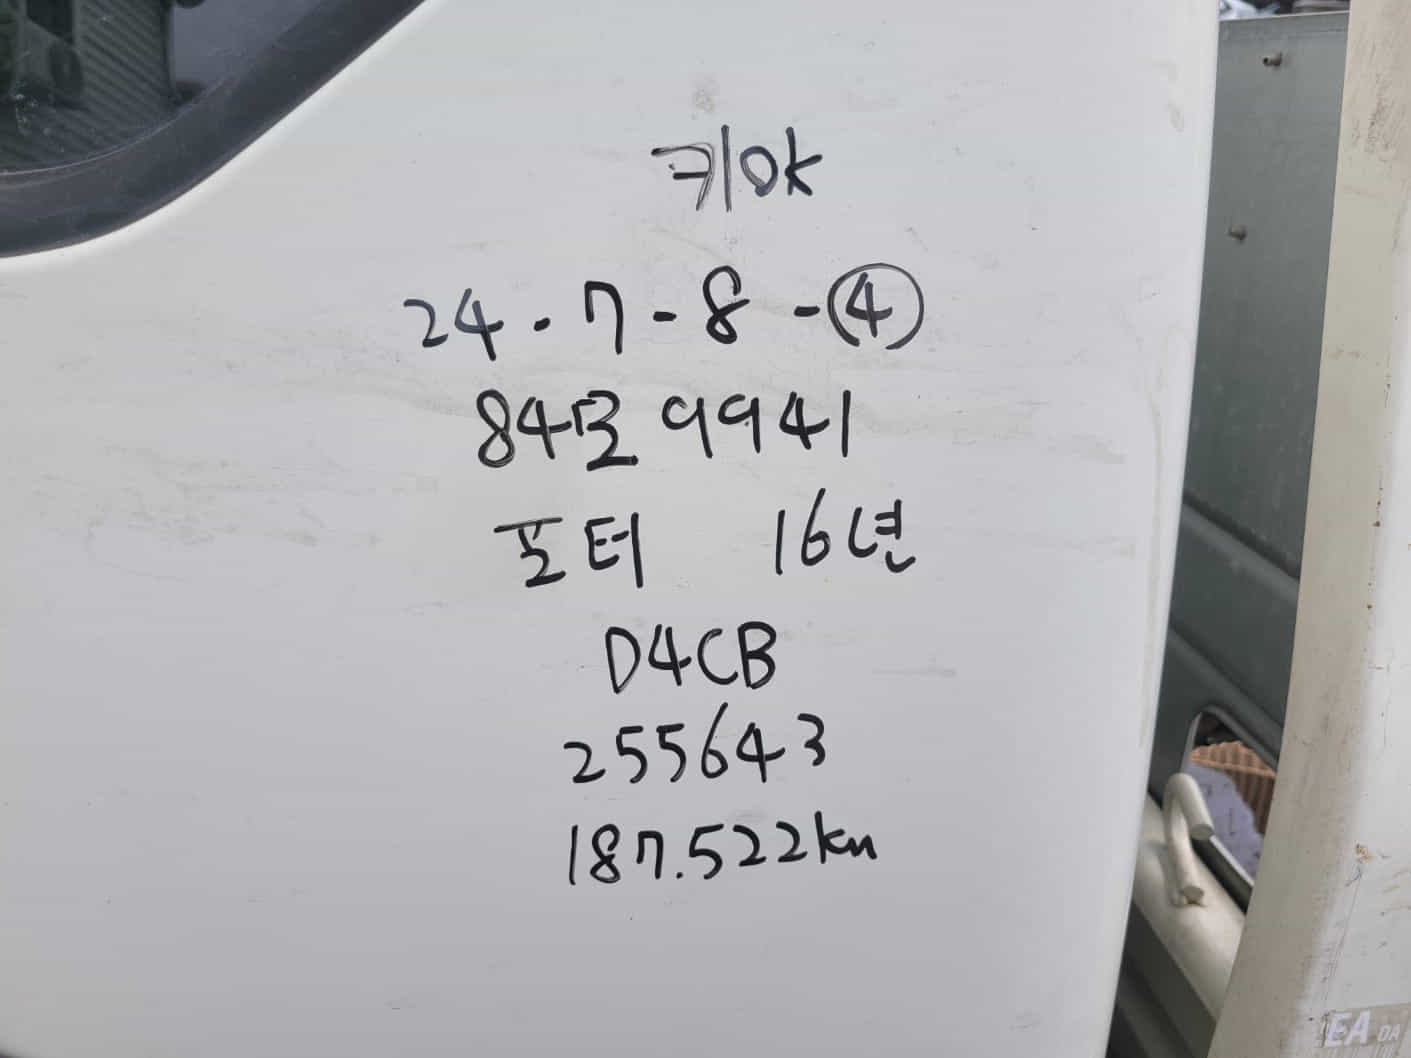 키ok
24.7-8-④
84모9941
포터 16년
D4CB
255643
187.522km
EA DA